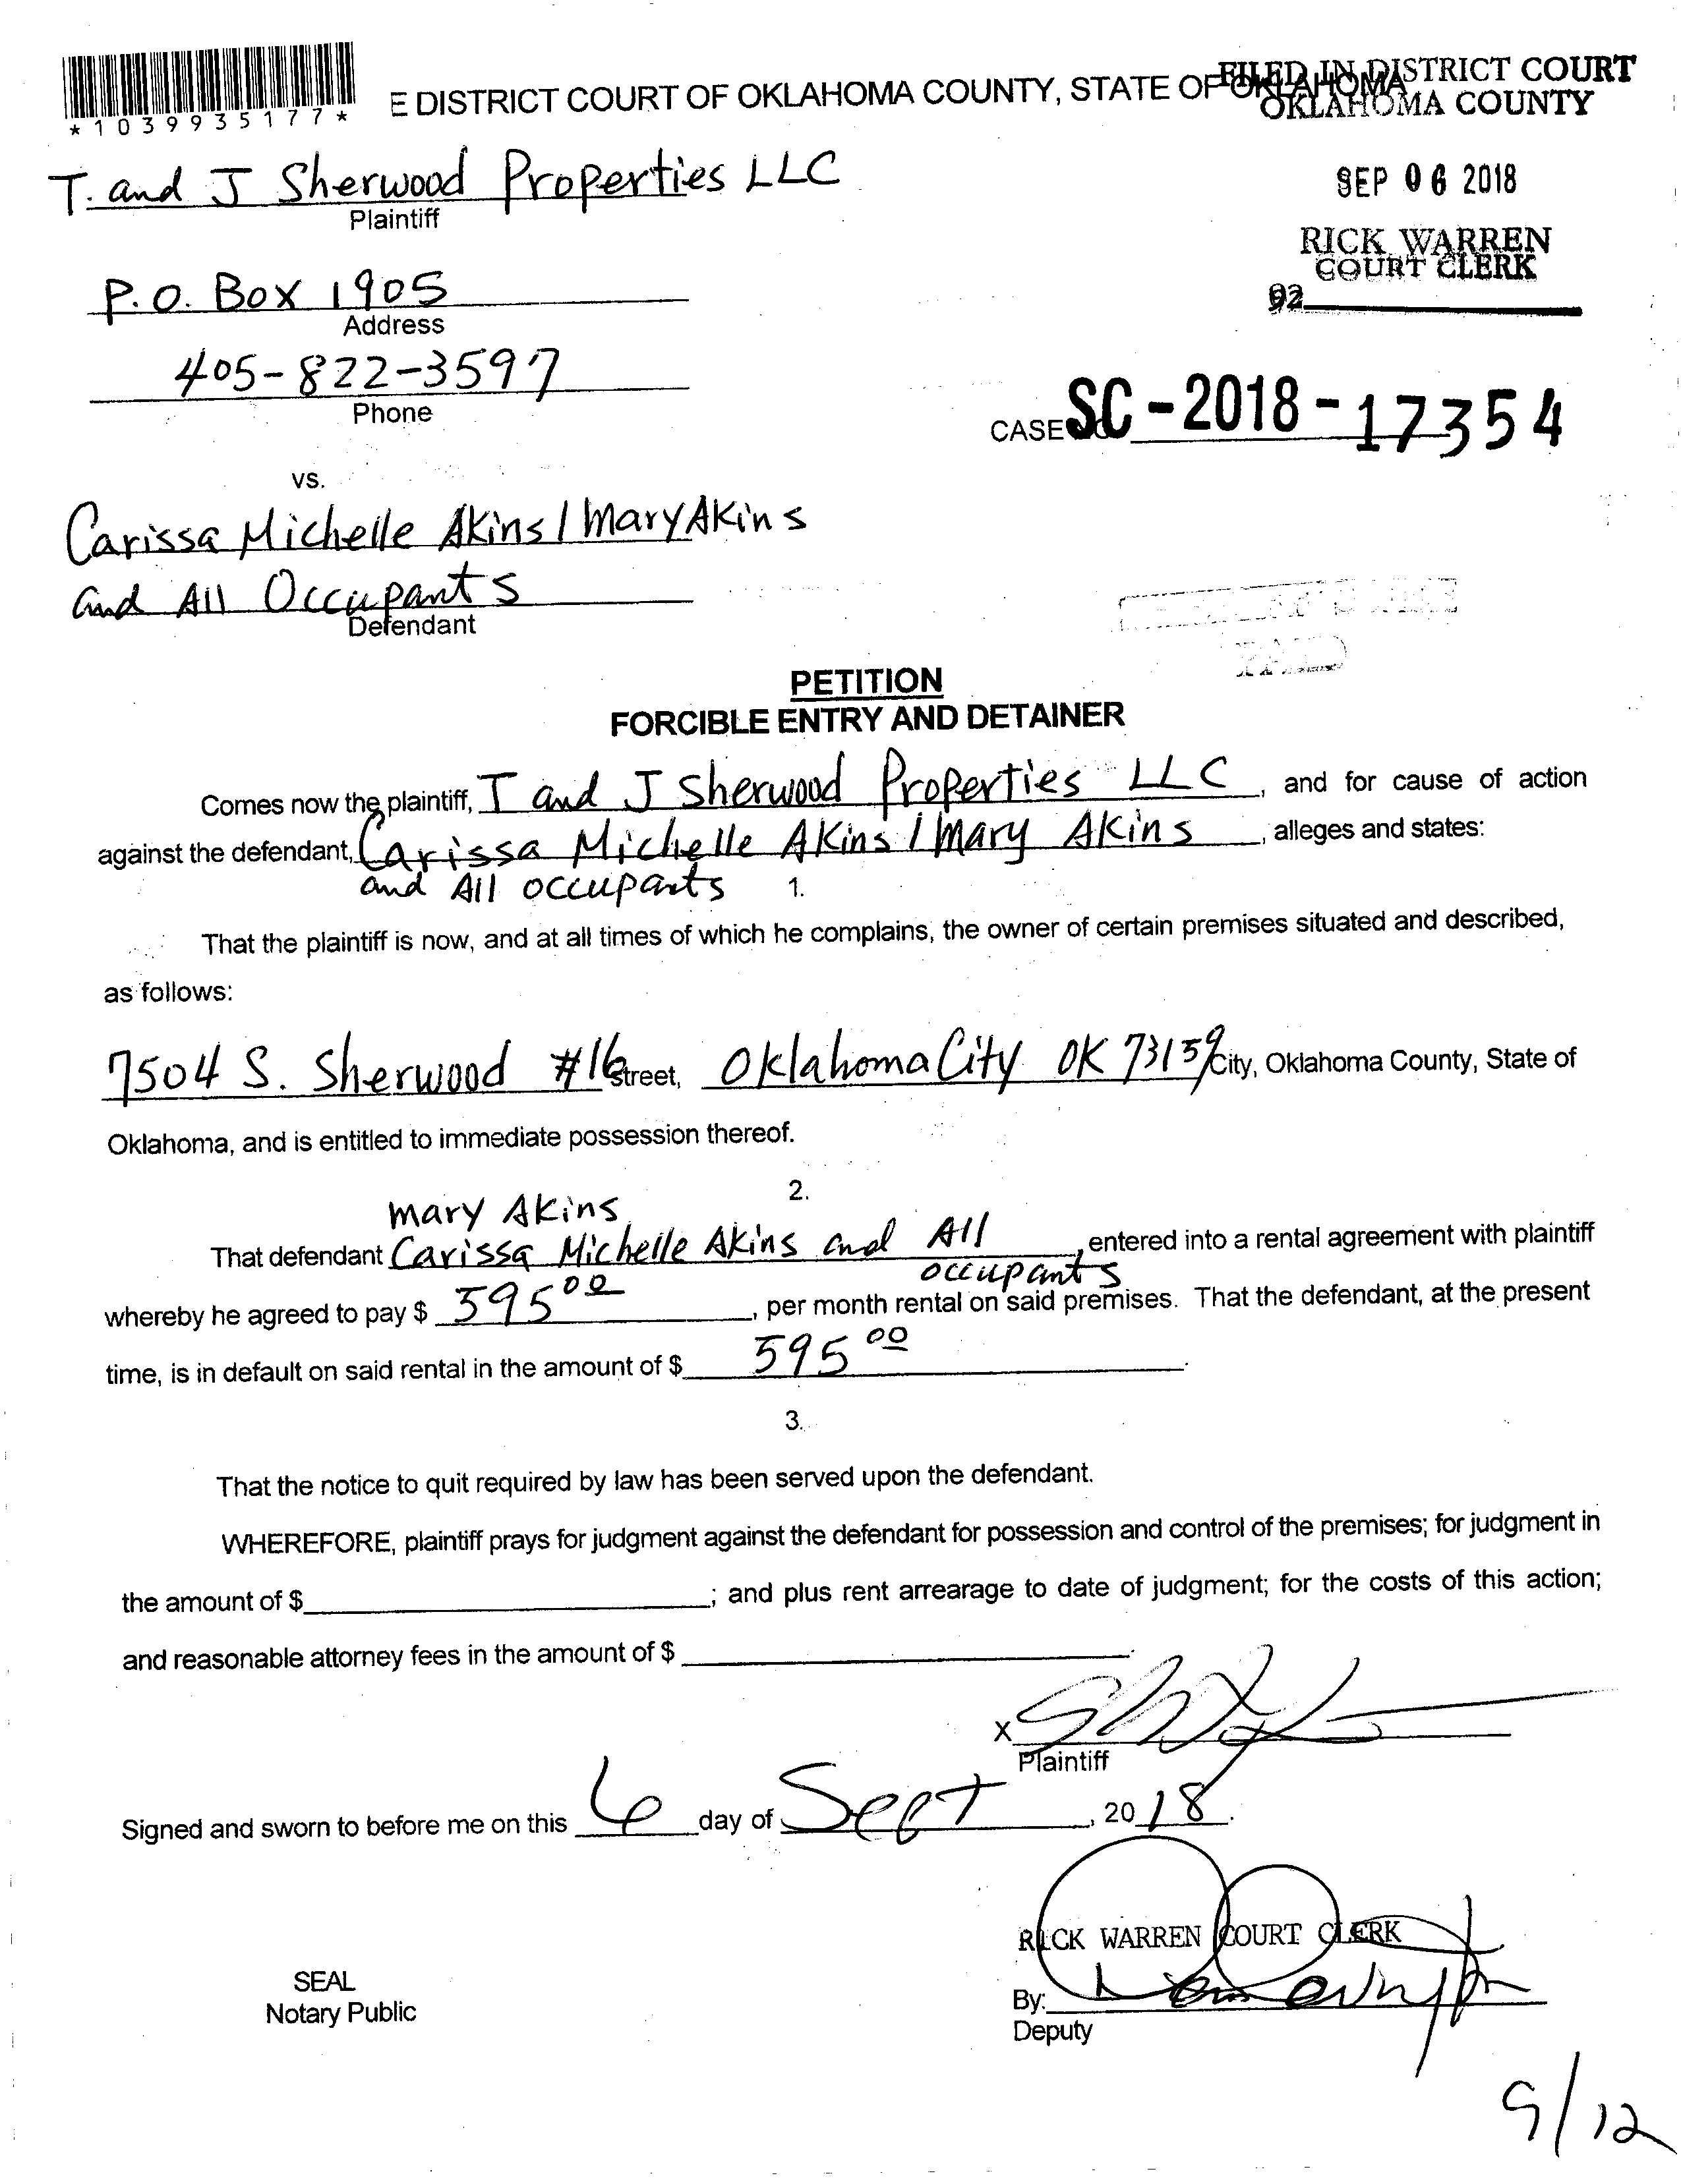 E DISTRICT COURT OF OKLAHOMA COUNTY, STATE OF OKLAHOMA
FILED IN DISTRICT COURT
OKLAHOMA COUNTY
*1039935177*
T. and J Sherwood Properties LLC
Plaintiff
SEP 06 2018
RICK WARREN
COURT CLERK
P.O. Box 1905
Address
92
405-822-3597
Phone
CASE SC-2018-17354
vs.
Carissa Michelle Akins / Mary Akins
and All Occupants
Defendant
PETITION
FORCIBLE ENTRY AND DETAINER
Comes now the plaintiff, T and J Sherwood Properties LLC, and for cause of action
against the defendant, Carissa Michelle Akins / Mary Akins, alleges and states:
and All occupants
1.
That the plaintiff is now, and at all times of which he complains, the owner of certain premises situated and described,
as follows:
7504 S. Sherwood #16 Street, Oklahoma City OK 73159 City, Oklahoma County, State of
Oklahoma, and is entitled to immediate possession thereof.
2.
Mary Akins
That defendant Carissa Michelle Akins and All, entered into a rental agreement with plaintiff
occupants
whereby he agreed to pay $ 595 00, per month rental on said premises. That the defendant, at the present
time, is in default on said rental in the amount of $ 595 00.
3.
That the notice to quit required by law has been served upon the defendant.
WHEREFORE, plaintiff prays for judgment against the defendant for possession and control of the premises; for judgment in
the amount of $ ; and plus rent arrearage to date of judgment; for the costs of this action;
and reasonable attorney fees in the amount of $ .
X
Plaintiff
Signed and sworn to before me on this 6 day of Sept, 2018.
RICK WARREN COURT CLERK
SEAL
Notary Public
By:
Deputy
9/12